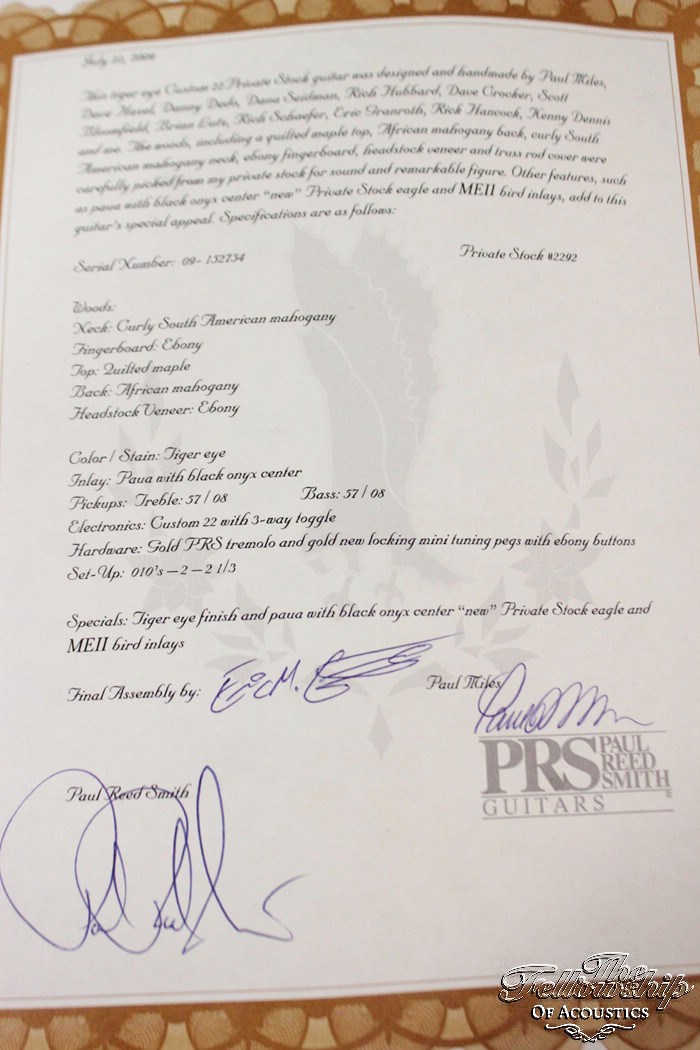 This tiger eye Custom 22 Private Stock guitar was designed and handmade by Paul Miles,
Dave Hazel, Danny Dedo, Dana Seidman, Rich Hubbard, Dave Crocker, Scott
Bloomfield, Brian Lutz, Rich Schaefer, Eric Granroth, Rick Hancock, Kenny Dennis
and me. The woods, including a quilted maple top, African mahogany back, curly South
American mahogany neck, ebony fingerboard, headstock veneer and truss rod cover were
carefully picked from my private stock for sound and remarkable figure. Other features, such
as paua with black onyx center "new" Private Stock eagle and MEII bird inlays, add to this
guitar's special appeal. Specifications are as follows:
Serial Number: 09- 152754 Private Stock #2292
Woods:
Neck: Curly South American mahogany
Fingerboard: Ebony
Top: Quilted maple
Back: African mahogany
Headstock Veneer: Ebony
Color / Stain: Tiger eye
Inlay: Paua with black onyx center
Pickups: Treble: 57 / 08 Bass: 57 / 08
Electronics: Custom 22 with 3-way toggle
Hardware: Gold PRS tremolo and gold new locking mini tuning pegs with ebony buttons
Set-Up: 010's – 2 – 2 1/3
Specials: Tiger eye finish and paua with black onyx center "new" Private Stock eagle and
MEII bird inlays
Final Assembly by: Paul Miles
PRS PAUL
REED
SMITH®
GUITARS
Paul Reed Smith
The
Fellowship
Of Acoustics